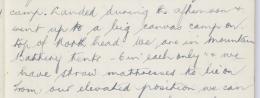 camp. Landed during the afternoon &
went up to a big canvas camp on
top of North head we are in mountain
battery tents - 6 in each only & we
have straw mattresses to lie on
From our elevated position we can